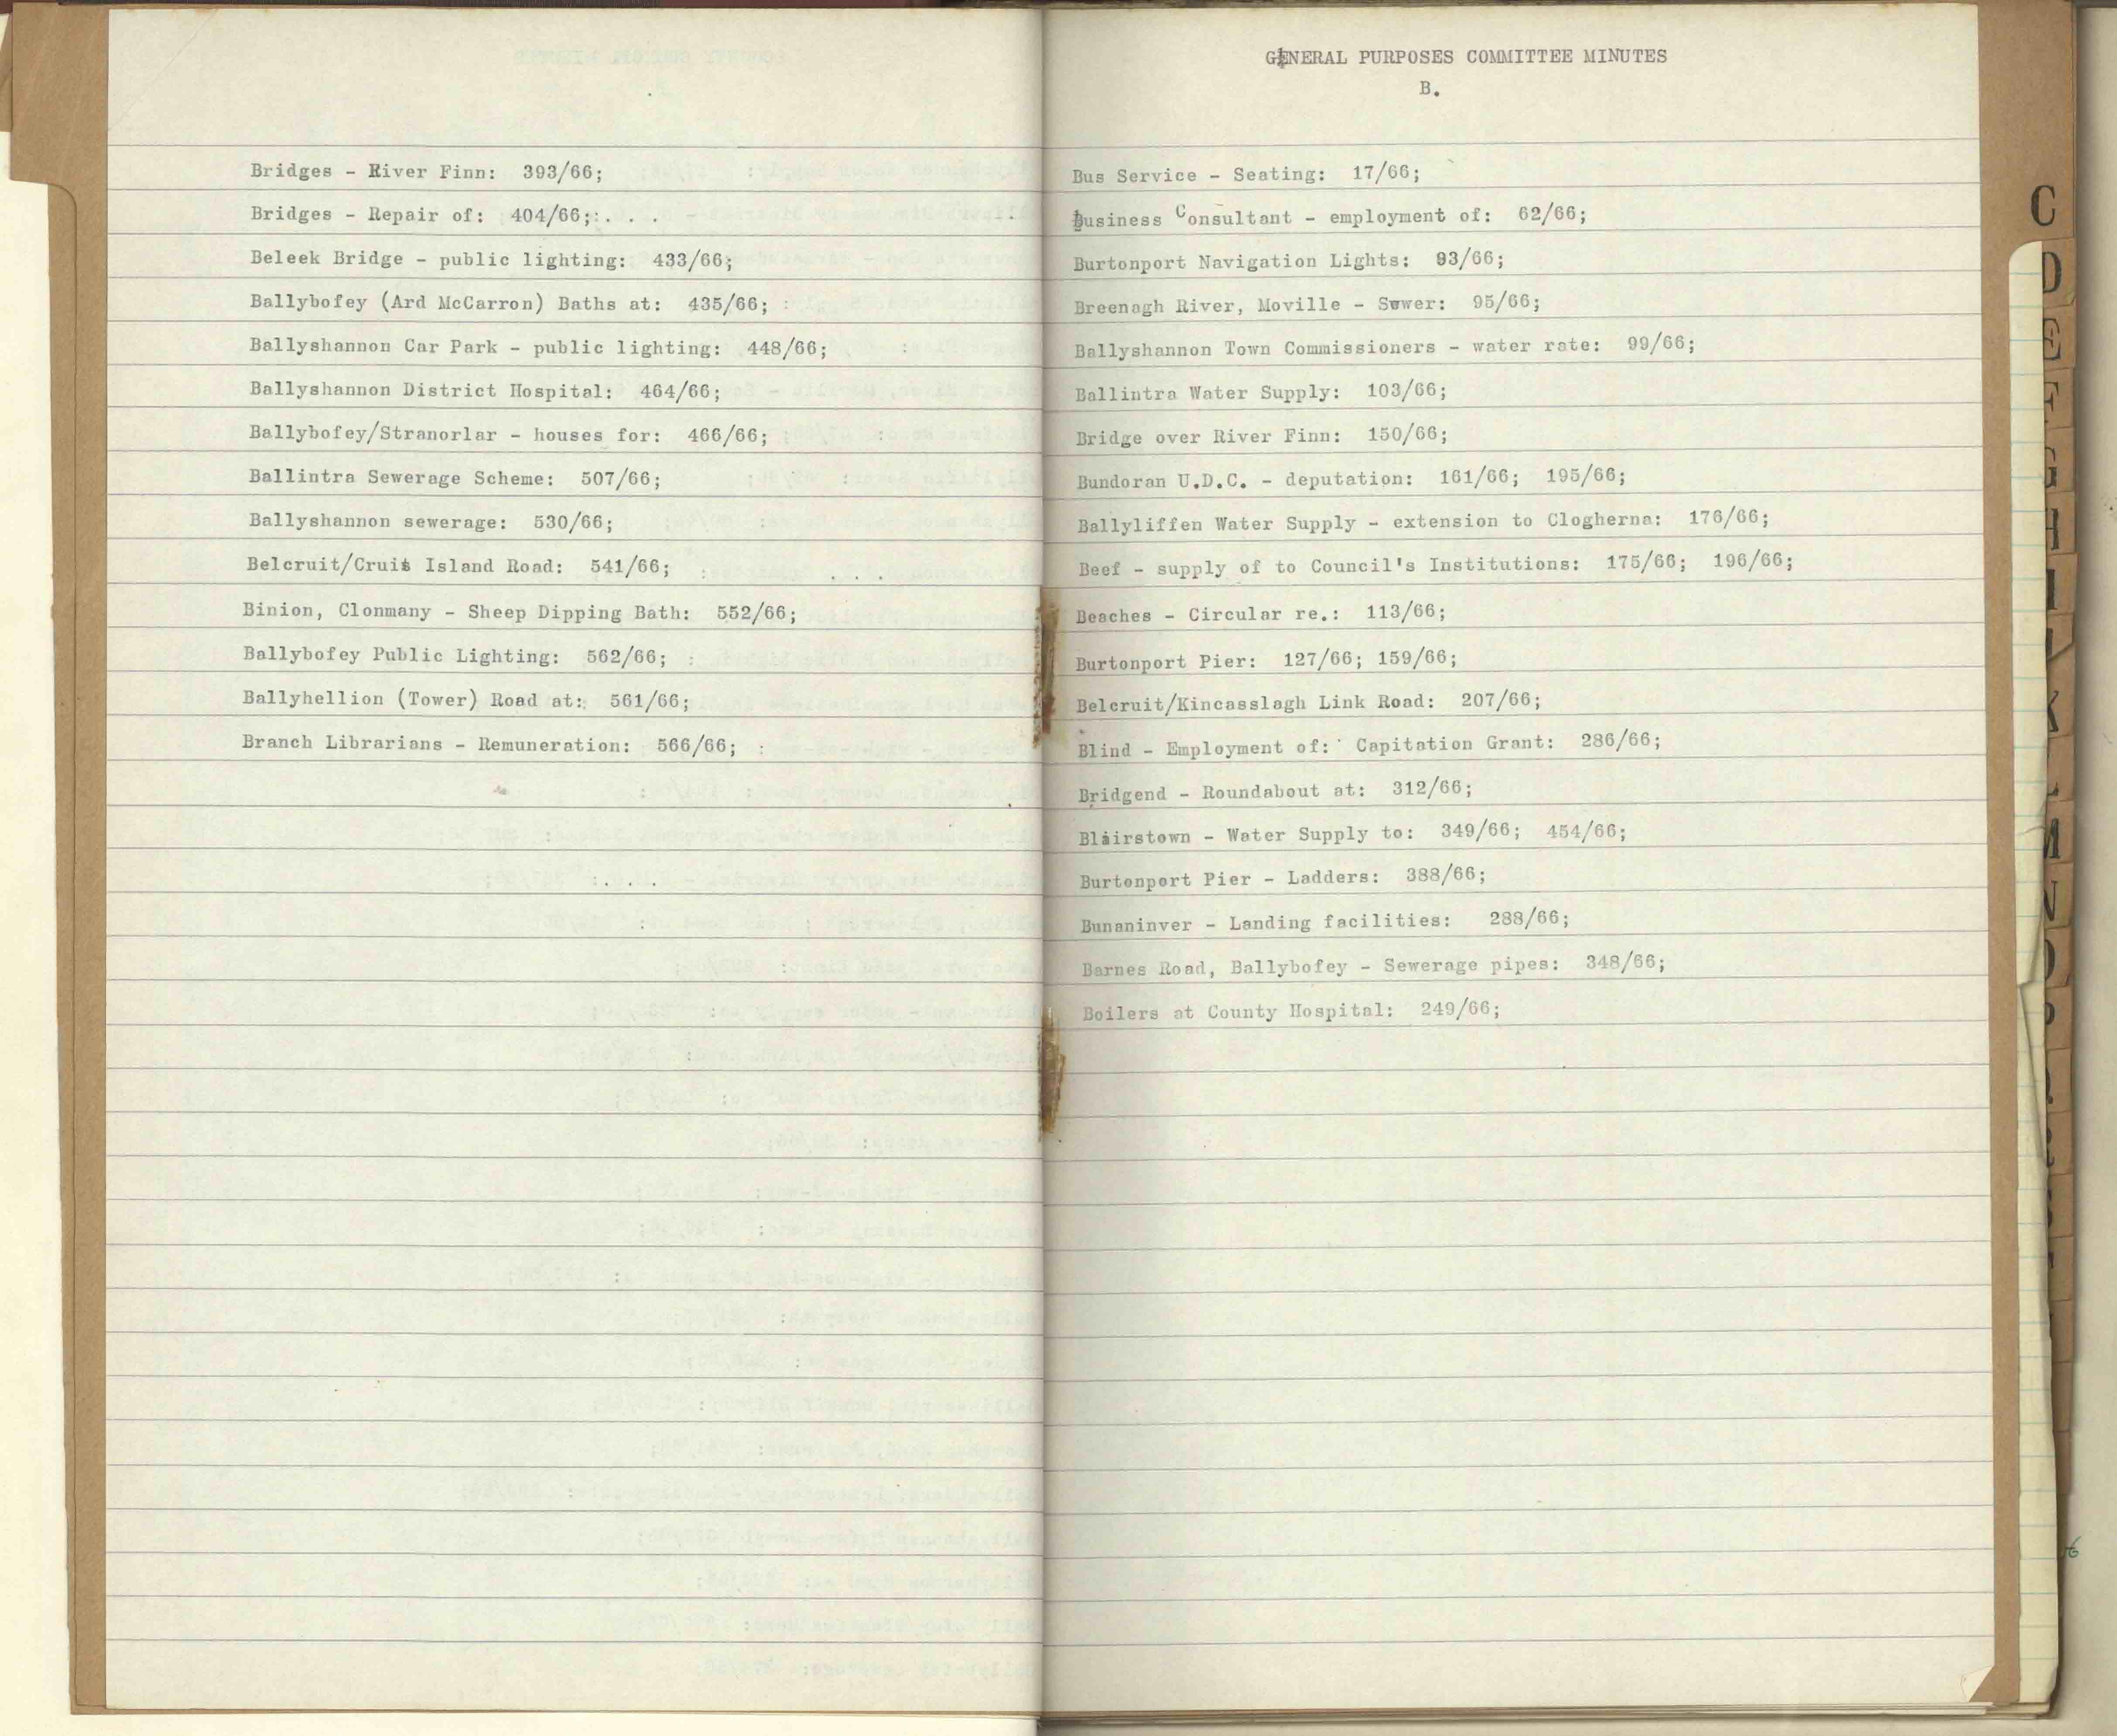 Bridges - River Finn: 393/66;
Bridges - Repair of: 404/66;:. . .
Beleek Bridge - public lighting: 433/66;
Ballybofey (Ard McCarron) Baths at: 435/66;
Ballyshannon Car Park - public lighting: 448/66;
Ballyshannon District Hospital: 464/66;
Ballybofey/Stranorlar - houses for: 466/66;
Ballintra Sewerage Scheme: 507/66;
Ballyshannon sewerage: 530/66;
Belcruit/Cruit Island Road: 541/66;
Binion, Clonmany - Sheep Dipping Bath: 552/66;
Ballybofey Public Lighting: 562/66;
Ballyhellion (Tower) Road at: 561/66;
Branch Librarians - Remuneration: 566/66;
GENERAL PURPOSES COMMITTEE MINUTES
B.
Bus Service - Seating: 17/66;
Business Consultant - employment of: 62/66;
Burtonport Navigation Lights: 93/66;
Breenagh River, Moville - Sewer: 95/66;
Ballyshannon Town Commissioners - water rate: 99/66;
Ballintra Water Supply: 103/66;
Bridge over River Finn: 150/66;
Bundoran U.D.C. - deputation: 161/66; 195/66;
Ballyliffen Water Supply - extension to Clogherna: 176/66;
Beef - supply of to Council's Institutions: 175/66; 196/66;
Beaches - Circular re.: 113/66;
Burtonport Pier: 127/66; 159/66;
Belcruit/Kincasslagh Link Road: 207/66;
Blind - Employment of: Capitation Grant: 286/66;
Bridgend - Roundabout at: 312/66;
Blairstown - Water Supply to: 349/66; 454/66;
Burtonport Pier - Ladders: 388/66;
Bunaninver - Landing facilities: 288/66;
Barnes Road, Ballybofey - Sewerage pipes: 348/66;
Boilers at County Hospital: 249/66;
C
D
E
F
G
H
I
K
M
N